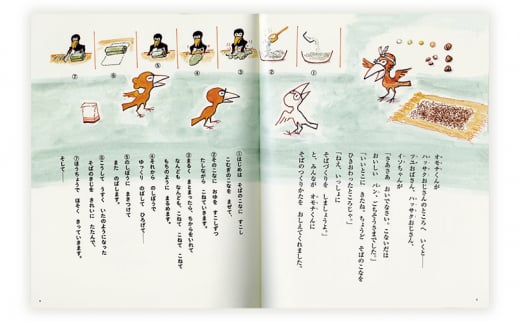 オモチくんが
ハッサクおじさんのところへ いくと──
フユおばさん、ハッサクおじさん、
イソちゃんが
「さあさあ おいでなさい。こないだは
おいしい パン、ごちそうさまでした。」
「いいとこに きたね。ちょうど そばのこなを
ひきおわったところじゃ。」
「ねえ、いっしょに
そばづくりを しましょうよ。」
と、みんなが オモチくんに
そばのつくりかたを おしえてくれました。
①はじめは、そばのこなに すこし
こむぎのこなを まぜて、
②そのこなに おゆを すこしずつ
たしながら こねていきます。
③まるく まとまったら、ちからをいれて
なんども なんども、こねて こねて こねて
もちのように まるめます。
④それから のしぼうで
ゆっくり のばして ひろげて──
⑤のしぼうに まきつけて
また のばします。
⑥こうして うすく いたのようになった
そばのきじを きれいに たたんで、
⑦ほうちょうで ほそく きっていきます。
そして──
①
②
③
④
⑤
⑥
⑦